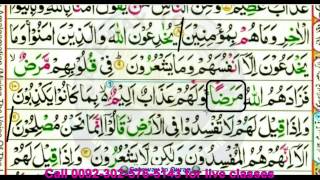 الْاٰخِرِ وَمَا هُمْ بِمُؤْمِنِيْنَ ۘ يُخٰدِعُوْنَ اللّٰهَ وَالَّذِيْنَ اٰمَنُوْا وَمَا
يَخْدَعُوْنَ اِلَّآ اَنْفُسَهُمْ وَمَا يَشْعُرُوْنَ فِيْ قُلُوْبِهِمْ مَّرَضٌ
فَزَادَهُمُ اللّٰهُ مَرَضًا وَلَهُمْ عَذَابٌ اَلِيْمٌ بِمَا كَانُوْا يَكْذِبُوْنَ
وَاِذَا قِيْلَ لَهُمْ لَا تُفْسِدُوْا فِي الْاَرْضِ قَالُوْٓا اِنَّمَا نَحْنُ مُصْلِحُوْنَ
اَلَآ اِنَّهُمْ هُمُ الْمُفْسِدُوْنَ وَلٰكِنْ لَّا يَشْعُرُوْنَ وَاِذَا قِيْلَ
Call for live classes